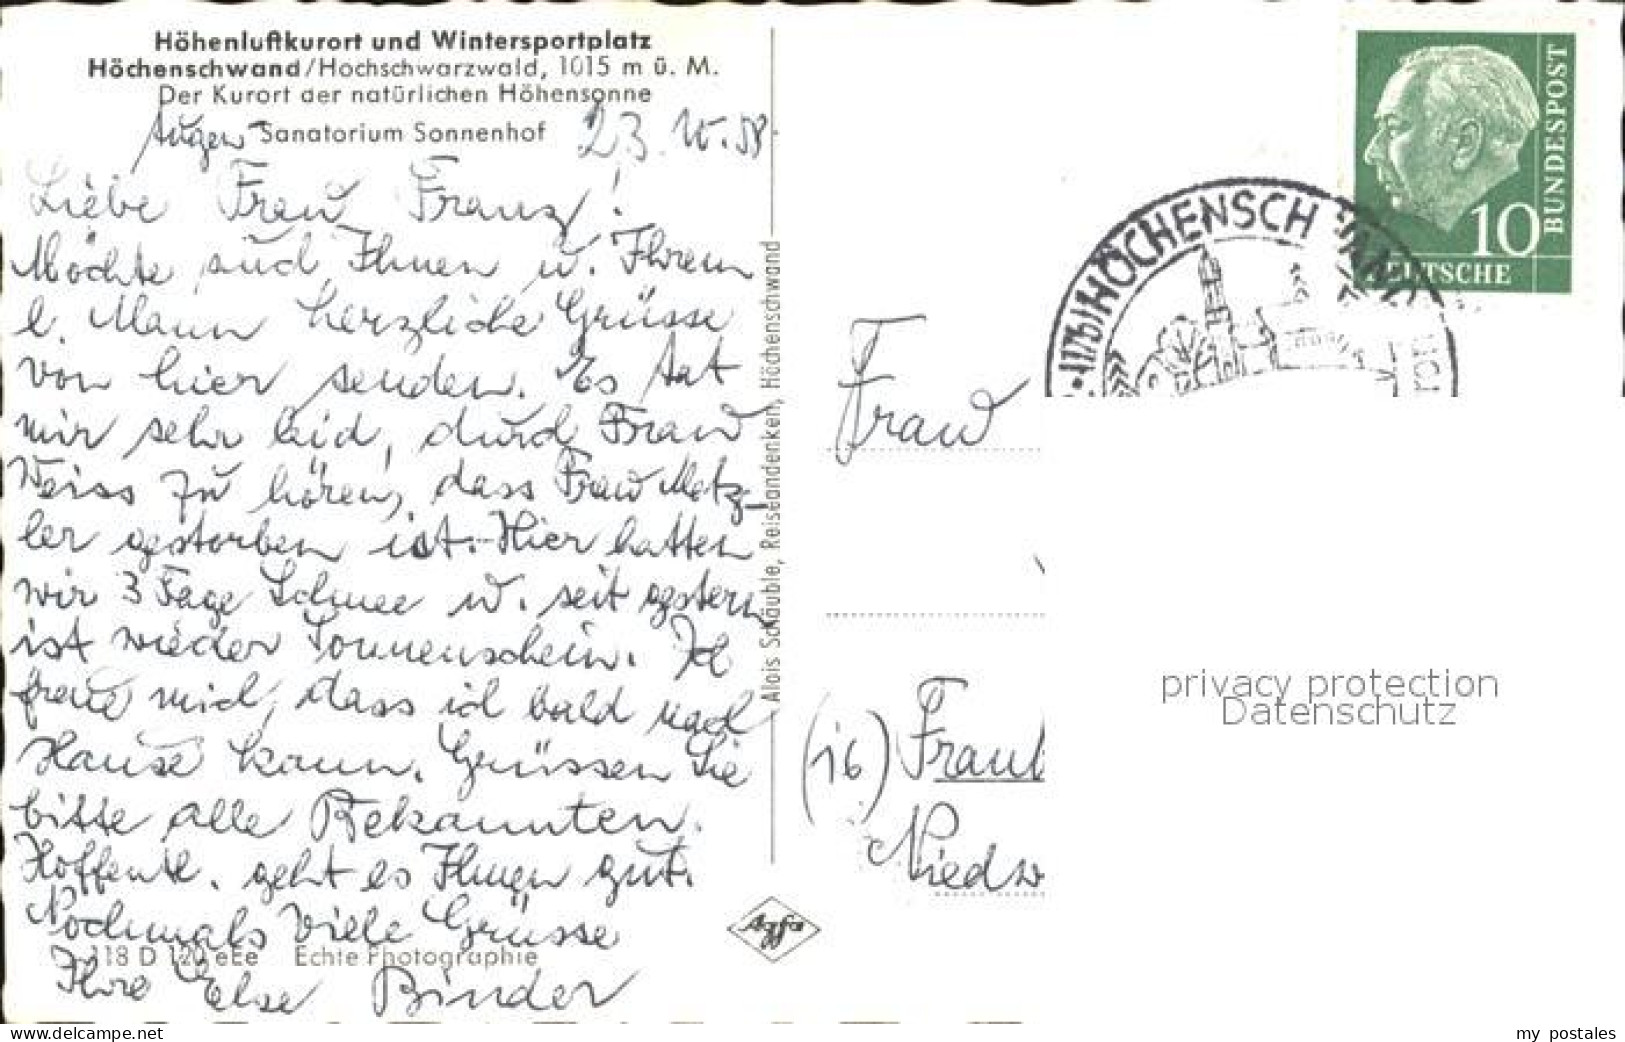 Höhenluftkurort und Wintersportplatz
Höchenschwand/Hochschwarzwald, 1015 m ü. M.
Der Kurort der natürlichen Höhensonne
Augen- Sanatorium Sonnenhof 23. 58.
Liebe Frau Franz!
Möchte auch Ihnen u. Ihrem
l. Mann herzliche Grüsse
von hier senden. Es tat
mir sehr leid, durch Frau
Weiss zu hören, dass Frau Metz-
ler gestorben ist. - Hier hatten
wir 3 Tage Schnee u. seit gestern
ist wieder Sonnenschein. Ich
freue mich, dass ich bald nach
Hause kann. Grüssen Sie
bitte alle Bekannten.
Hoffentl. geht es Ihnen gut.
Nochmals viele Grüsse
118 D 120 eEe Echte Photographie
Ihre Else Binder
Alois Schäuble, Reiseandenken, Höchenschwand
Agfa
DEUTSCHE
BUNDESPOST
10
HÖCHENSCHWAND
Frau
(16) Frank
Niedw
privacy protection
Datenschutz
www.delcampe.net
my_postales